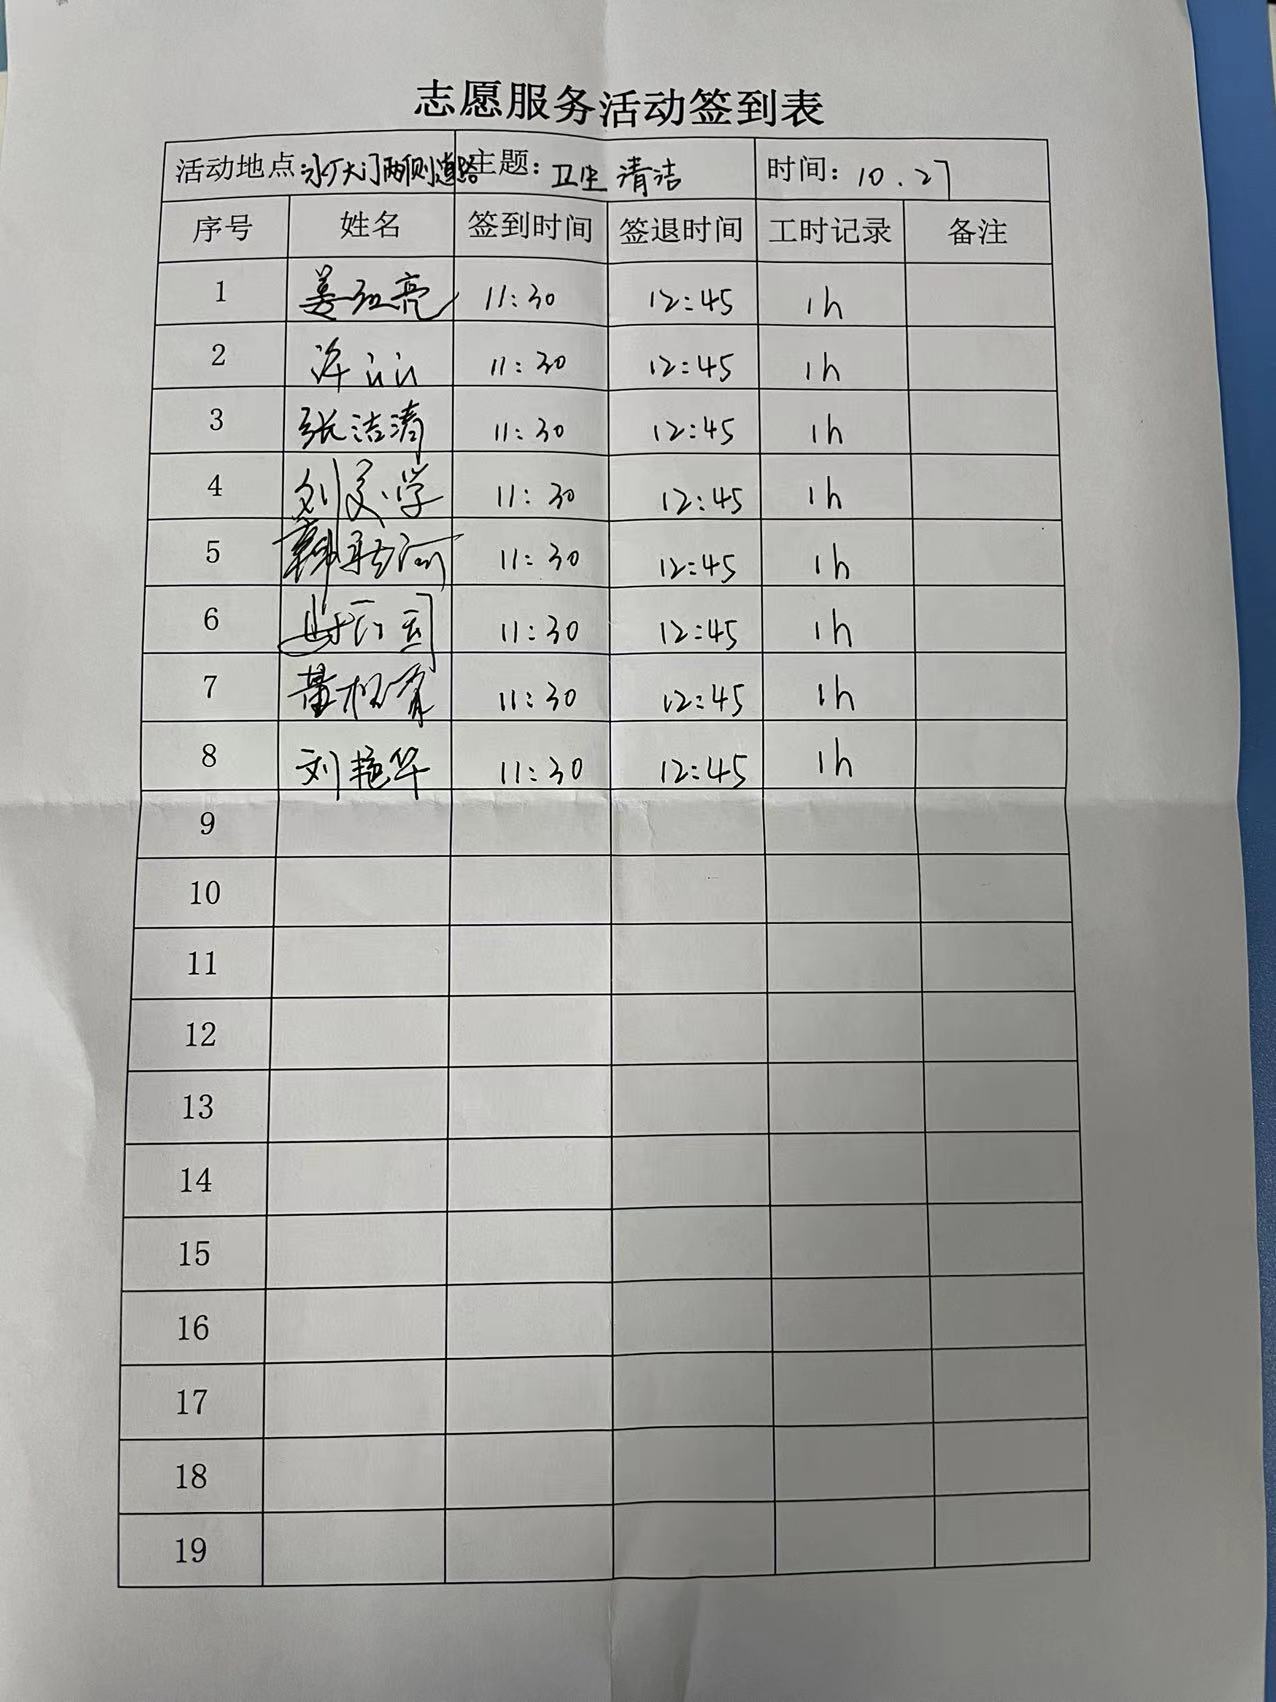 志愿服务活动签到表
活动地点:水厂大门两侧道路 主题: 卫生清洁 时间: 10.27
序号 姓名 签到时间 签退时间 工时记录 备注
1 姜红亮 11:30 12:45 1h
2 许 11:30 12:45 1h
3 张洁清 11:30 12:45 1h
4 刘学 11:30 12:45 1h
5 韩 11:30 12:45 1h
6 11:30 12:45 1h
7 董 11:30 12:45 1h
8 刘艳华 11:30 12:45 1h
9
10
11
12
13
14
15
16
17
18
19